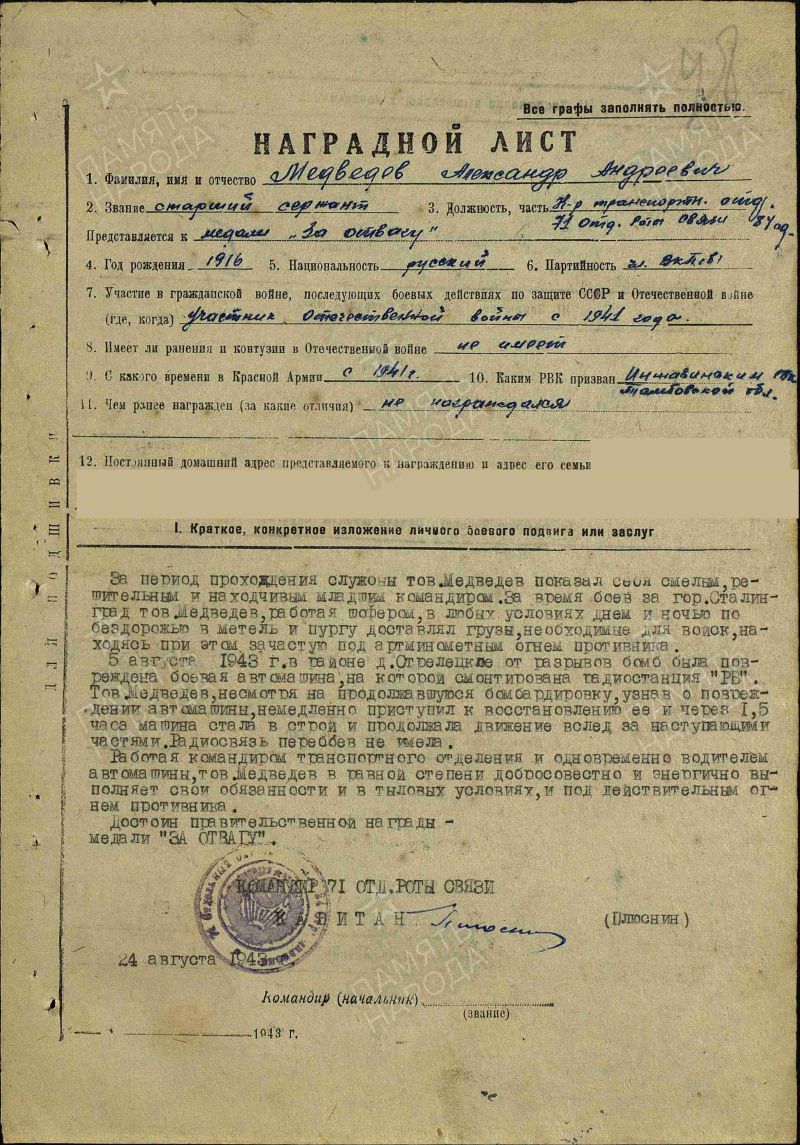 48
Все графы заполнять полностью.
НАГРАДНОЙ ЛИСТ
1. Фамилия, имя и отчество Медведев Александр Андреевич
2. Звание старший сержант 3. Должность, часть К-р транспортн. отд.
71 отд. рота связи
Представляется к медали "За отвагу"
4. Год рождения 1916 5. Национальность русский 6. Партийность
7. Участие в гражданской войне, последующих боевых действиях по защите СССР и Отечественной войне
(где, когда) участник отечественной войны с 1941 года.
8. Имеет ли ранения и контузии в Отечественной войне не имеет
9. С какого времени в Красной Армии с 1941г. 10. Каким РВК призван
Тамбовской обл.
11. Чем ранее награжден (за какие отличия) не награждался
12. Постоянный домашний адрес представляемого к награждению и адрес его семьи
ДЛЯ ПОДШИВКИ
I. Краткое, конкретное изложение личного боевого подвига или заслуг
За период прохождения службы тов.Медведев показал себя смелым,ре-
шительным и находчивым младшим командиром.За время боев за гор.Сталин-
град тов.Медведев,работая шофером,в любых условиях днем и ночью по
бездорожью в метель и пургу доставлял грузы,необходимые для войск,на-
ходясь при этом зачастую под артминометным огнем противника.
5 августа 1943 г.в районе д.Стрелецкле от разрывов бомб была пов-
реждена боевая автомашина,на которой смонтирована радиостанция "РБ".
Тов.Медведев,несмотря на продолжавшуюся бомбардировку,узнав о повреж-
дении автомашины,немедленно приступил к восстановлению ее и через 1,5
часа машина стала в строй и продолжала движение вслед за наступающими
частями.Радиосвязь перебоев не имела.
Работая командиром транспортного отделения и одновременно водителем
автомашины,тов.Медведев в равной степени добросовестно и энергично вы-
полняет свои обязанности и в тыловых условиях,и под действительным ог-
нем противника.
Достоин правительственной награды -
медали "ЗА ОТВАГУ".
КОМАНДИР 71 ОТД.РОТЫ СВЯЗИ
КАПИТАН (Плюснин)
24 августа 1943
Командир (начальник)
(звание)
1943 г.
ПАМЯТЬ НАРОДА
ПАМЯТЬ НАРОДА
ПАМЯТЬ НАРОДА
ПАМЯТЬ НАРОДА